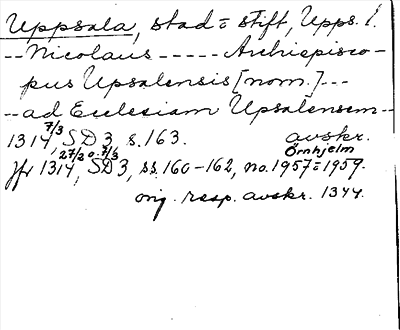 Uppsala, stad = stift, Upps. l.
-- Nicolaus ----- Archiepisco-
pus Upsalensis [nom.] ---
-- ad Ecclesiam Upsalensem --
1314 7/3, SD 3 s. 163. avskr.
Örnhjelm
Jfr 1314, 27/2 o. 7/3 SD 3, ss. 160-162, no. 1957=1959.
orig. resp. avskr. 1344.